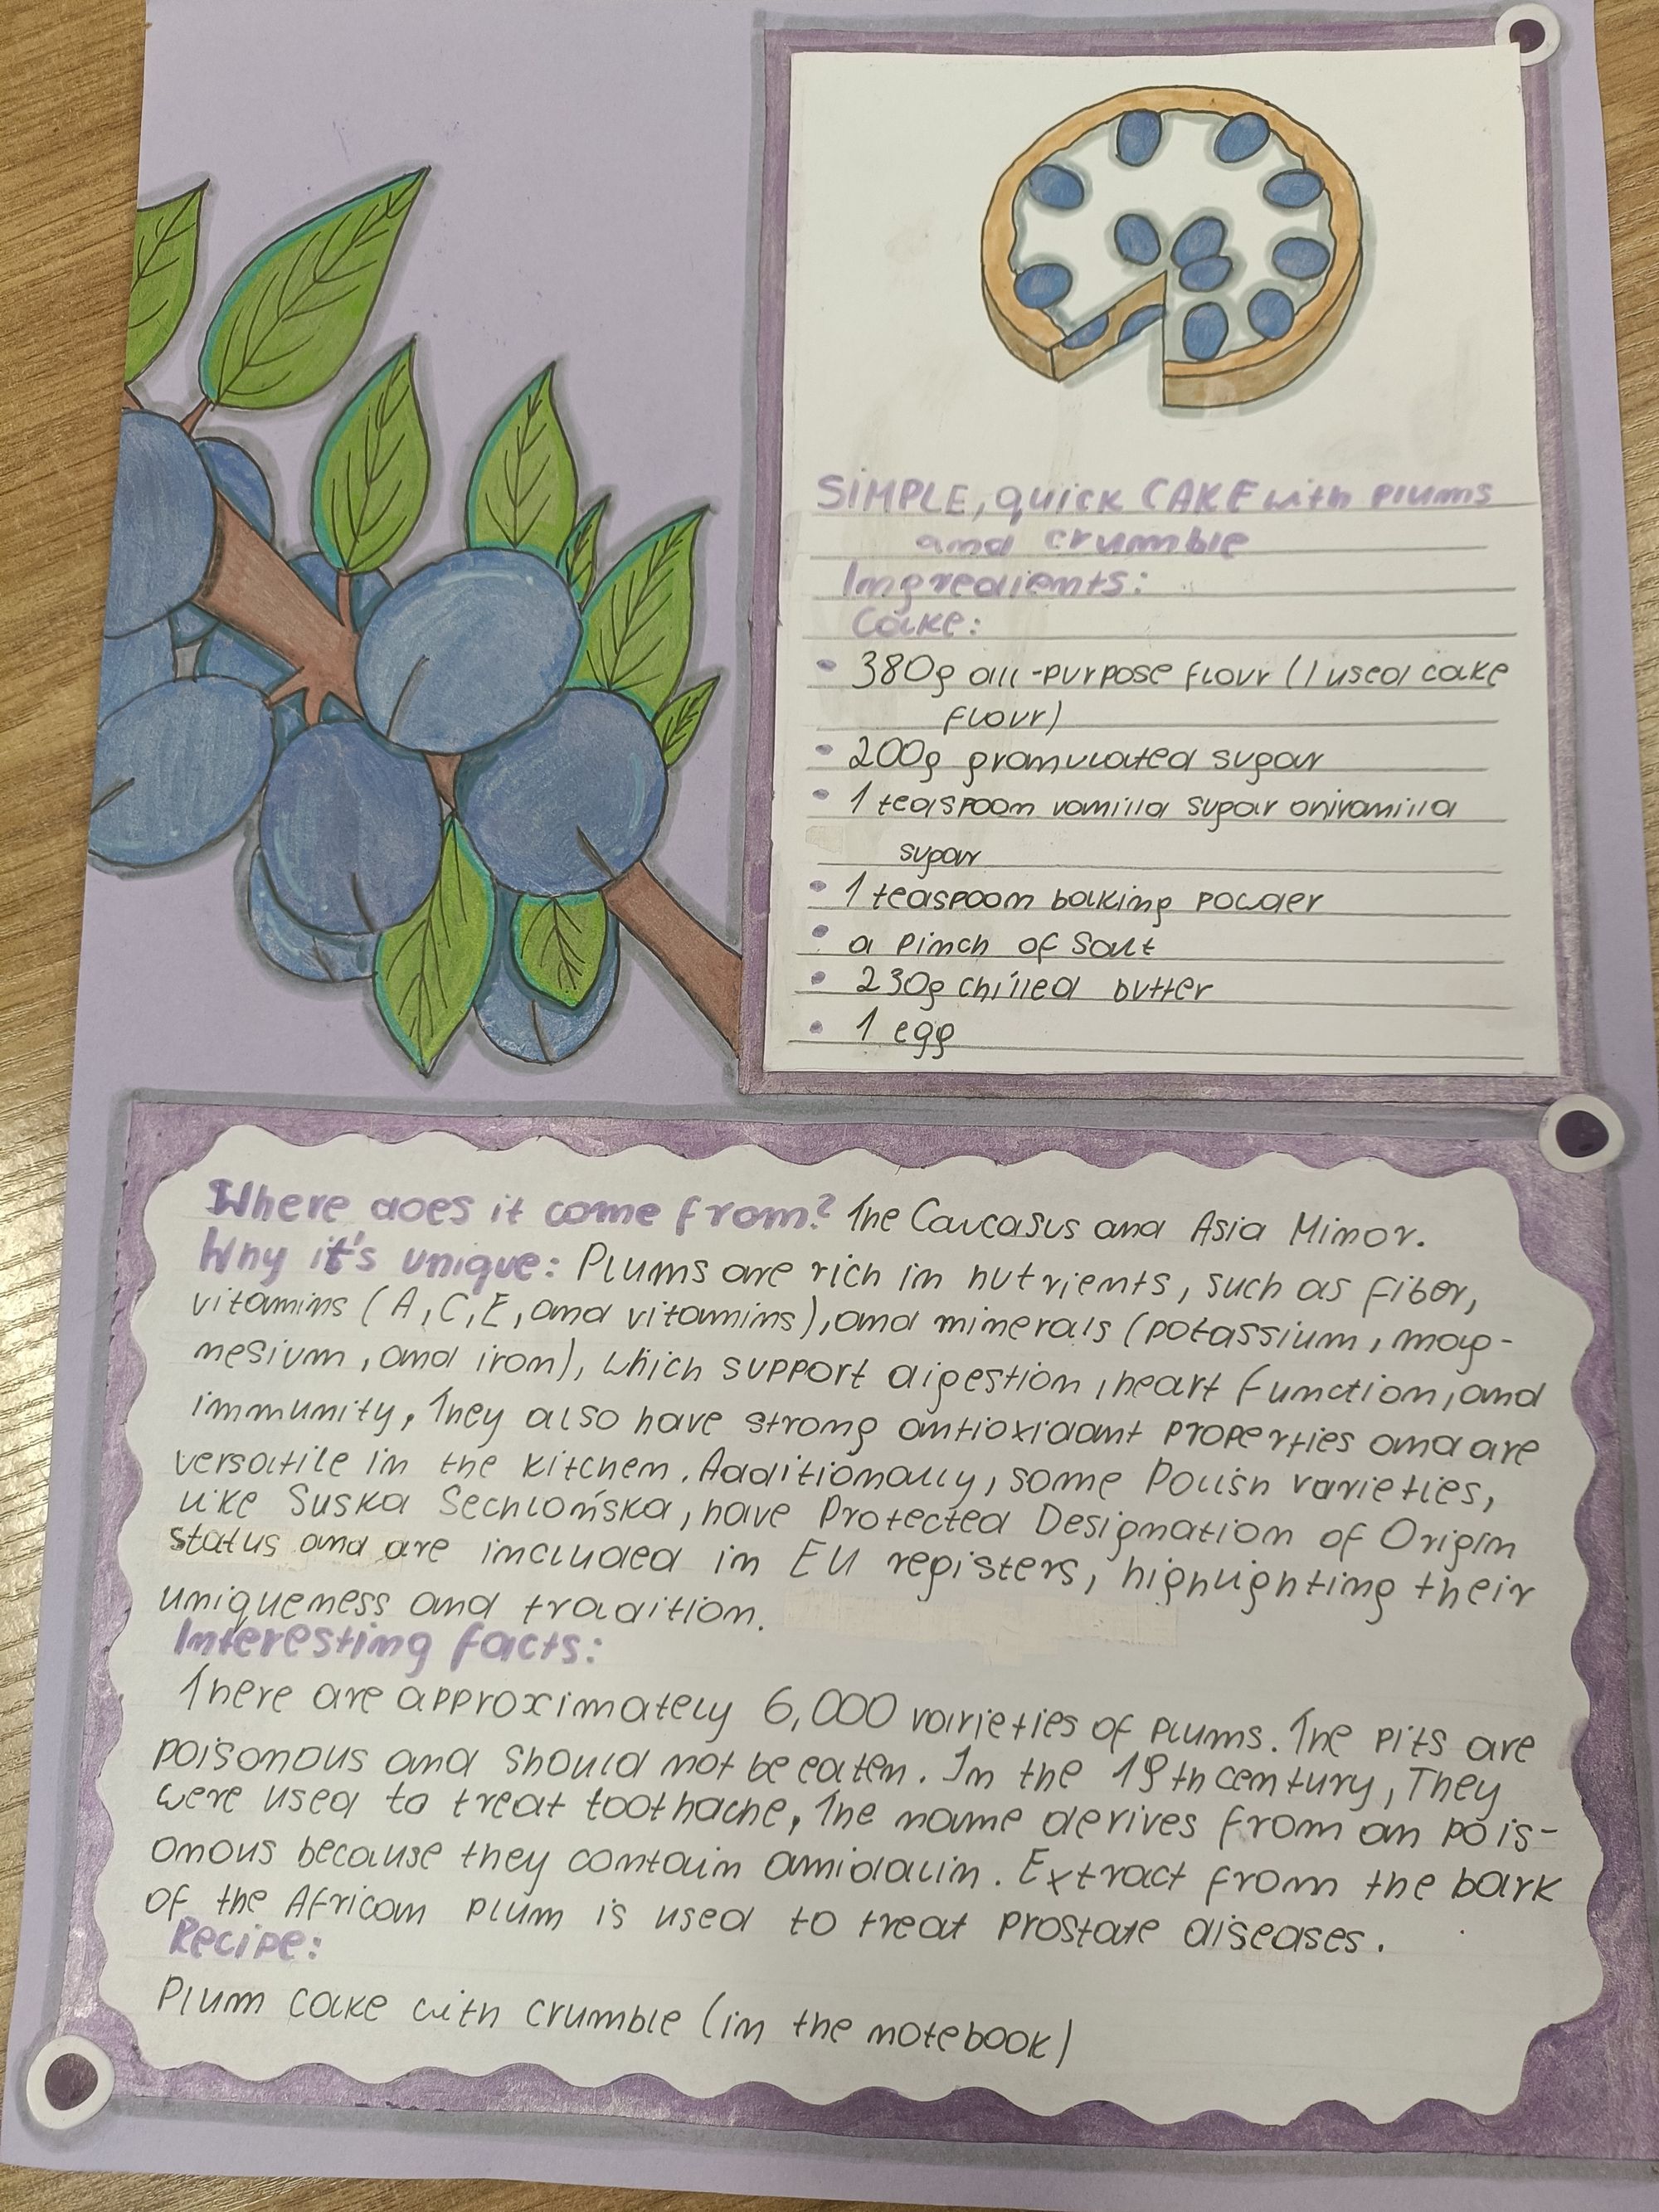 SIMPLE, quick CAKE with plums
and crumble
Ingredients:
Cake:
• 380g all-purpose flour (I used cake
flour)
• 200g granulated sugar
• 1 teaspoon vanilla sugar vanilla
sugar
• 1 teaspoon baking powder
• a pinch of salt
• 230g chilled butter
• 1 egg
Where does it come from? The Caucasus and Asia Minor.
Why it's unique: Plums are rich in nutrients, such as fiber,
vitamins (A, C, E, and vitamins), and minerals (potassium, mag-
nesium, and iron), which support digestion, heart function, and
immunity, They also have strong antioxidant properties and are
versatile in the kitchen. Additionally, some Polish varieties,
like Suska Sechlońska, have Protected Designation of Origin
status and are included in EU registers, highlighting their
uniqueness and tradition.
Interesting facts:
There are approximately 6,000 varieties of plums. The pits are
poisonous and should not be eaten. In the 19th century, They
were used to treat toothache, The name derives from an pois-
onous because they contain amidalin. Extract from the bark
of the African plum is used to treat prostate diseases.
Recipe:
Plum cake with crumble (in the notebook)